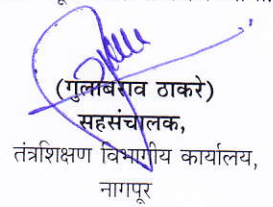 (गुलाबराव ठाकरे)
सहसंचालक,
तंत्रशिक्षण विभागीय कार्यालय,
नागपूर